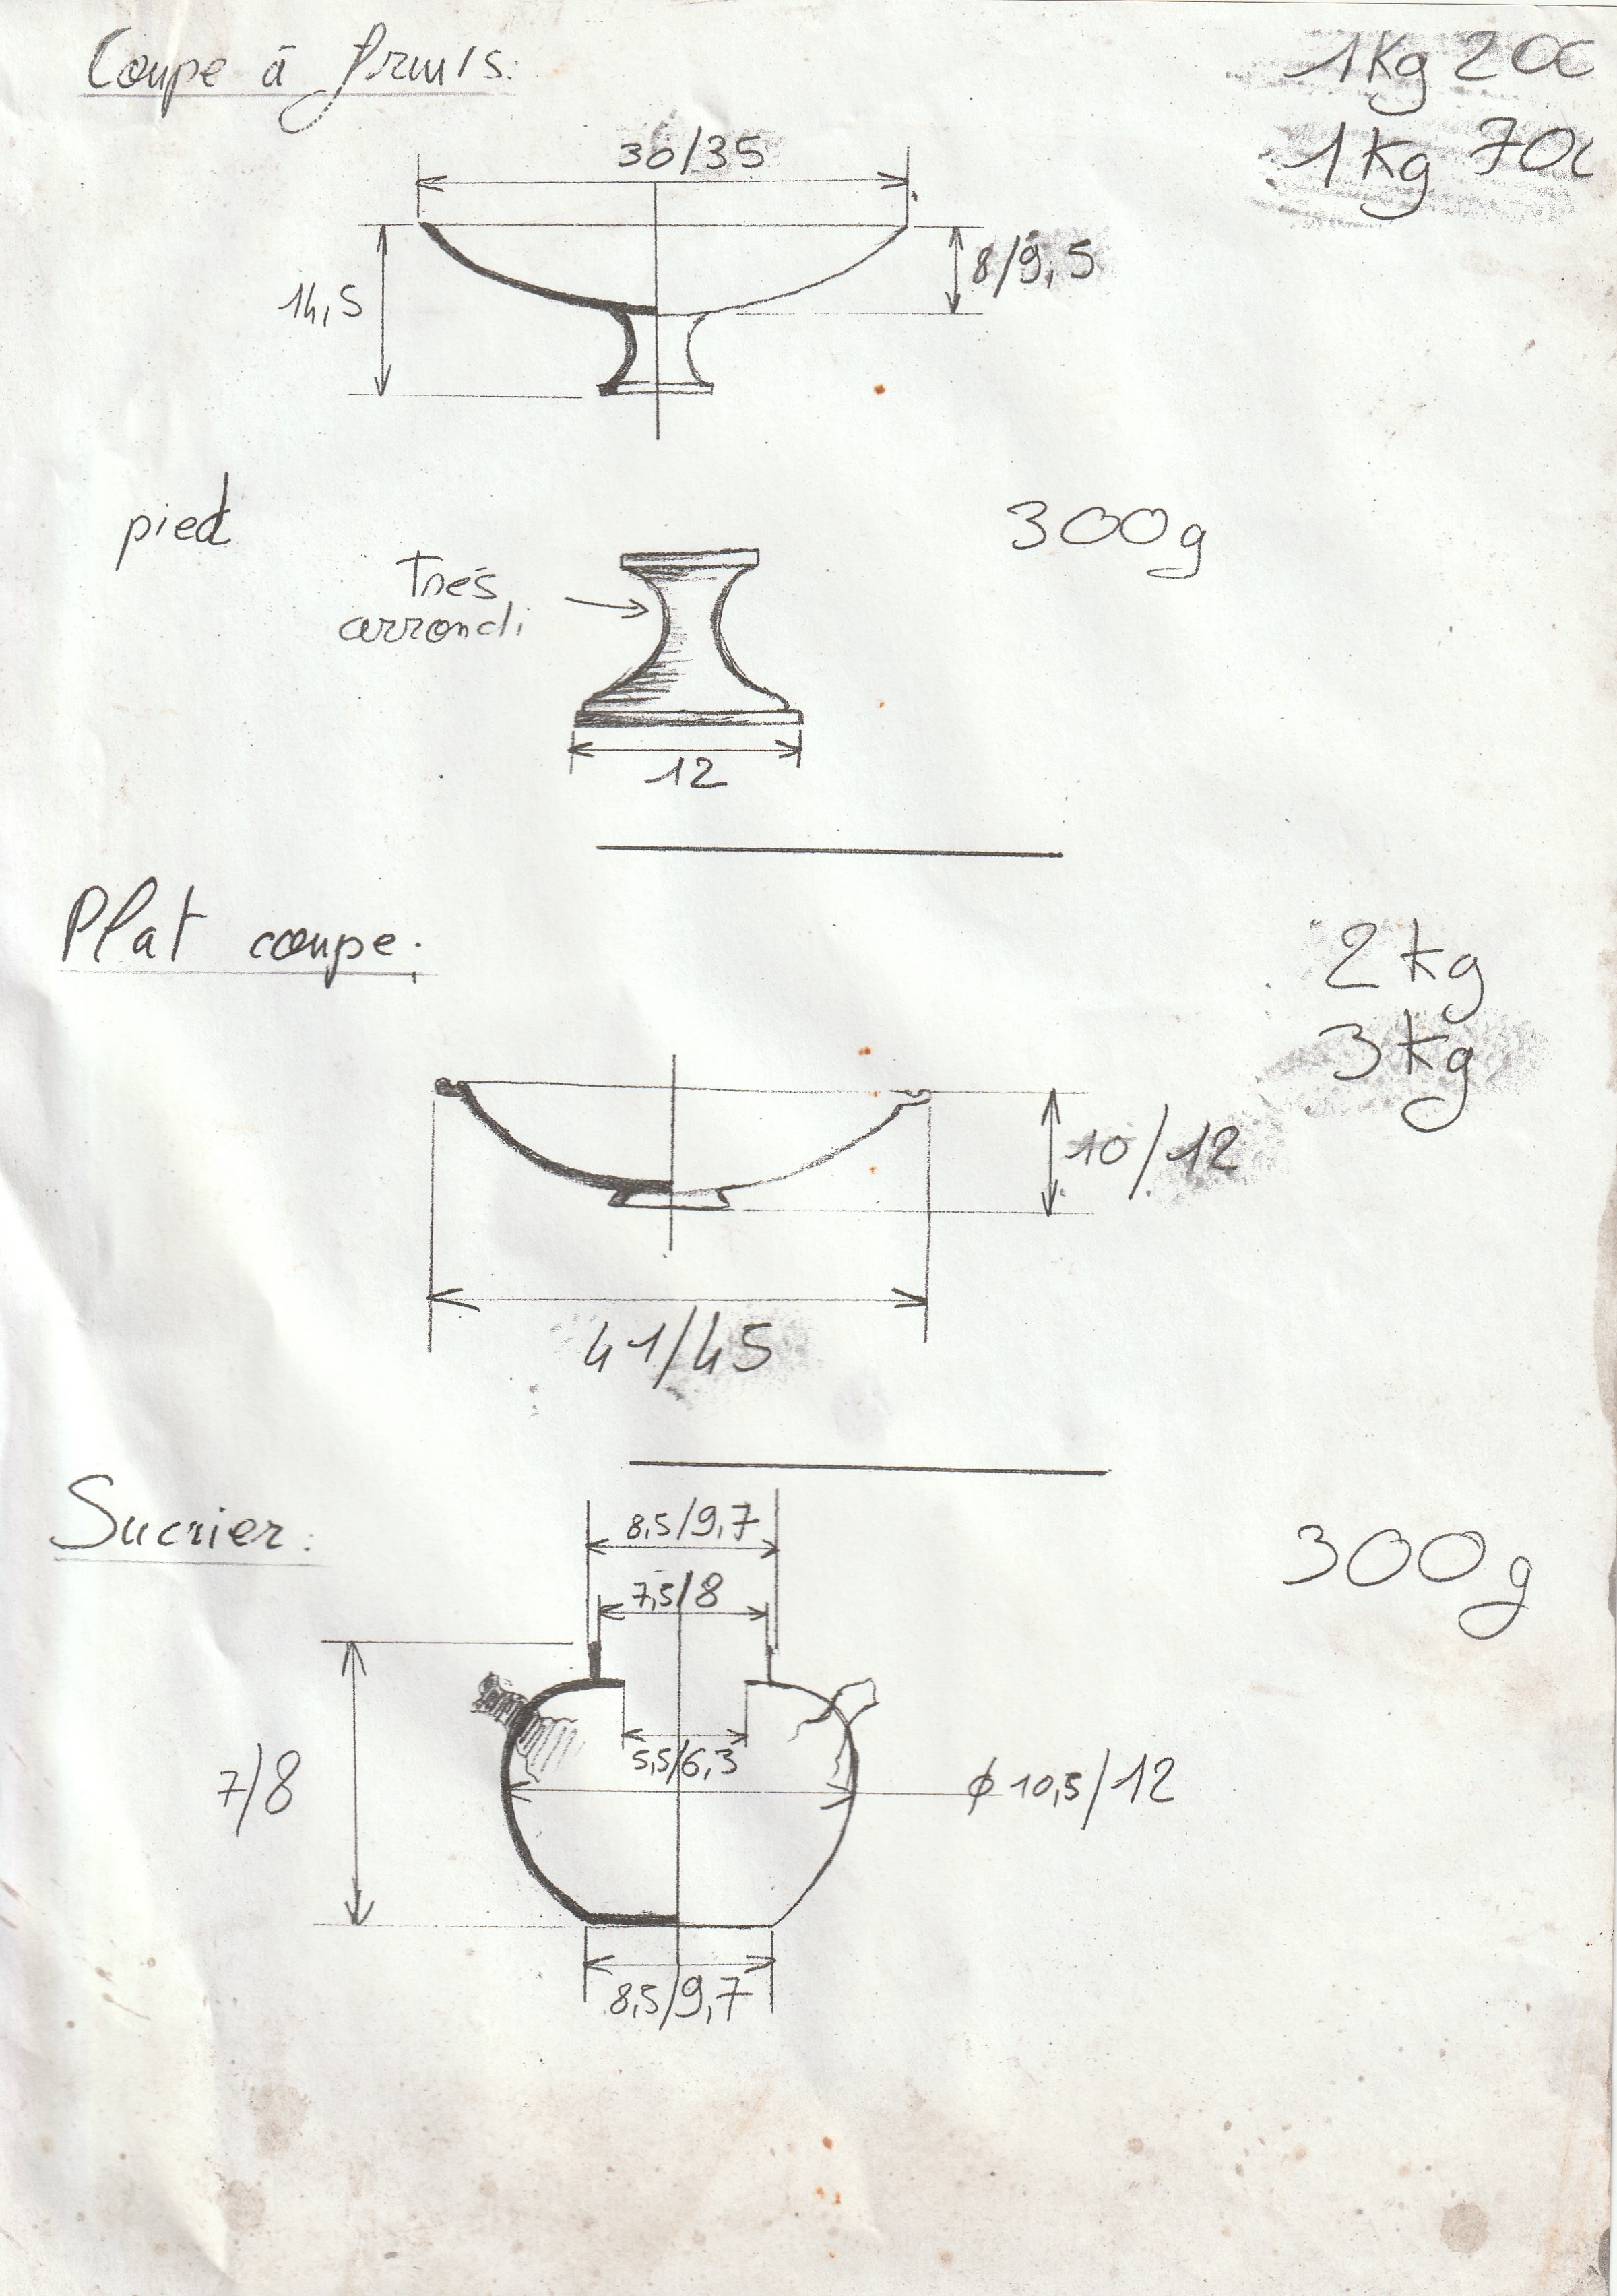 Coupe à fruits.
1Kg 200
1Kg 700
30/35
14,5
8/9,5
pied
300g
Très
arrondi
12
Plat coupe.
2kg
3kg
10/12
41/45
Sucrier.
300g
8,5/9,7
7,5/8
5,5/6,3
7/8
ϕ 10,5/12
8,5/9,7